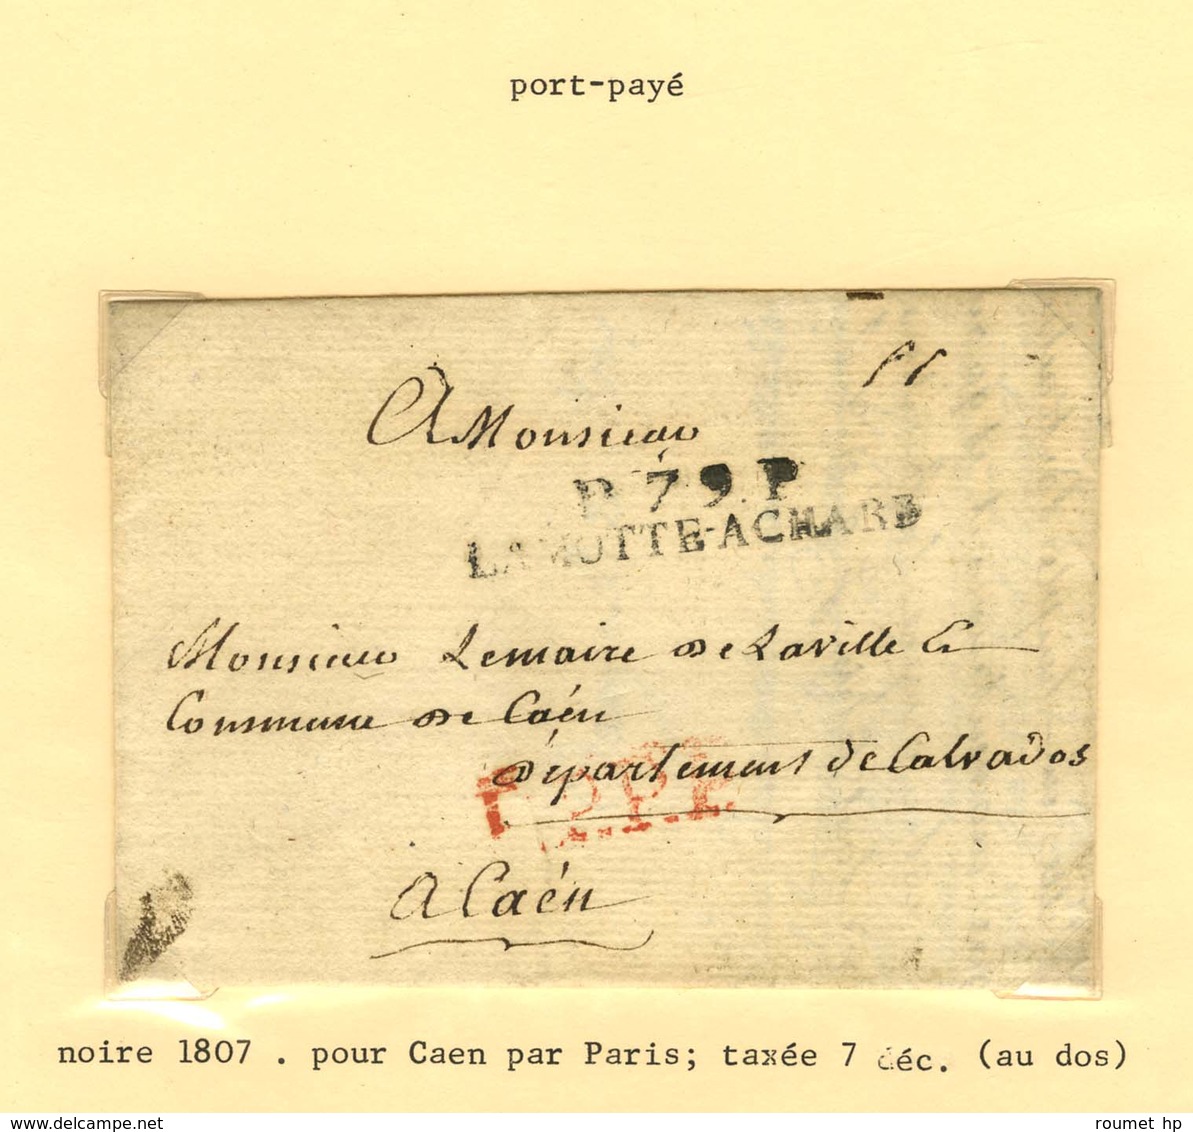 port-payé
A Monsieur
P.79.P.
LAMOTTE-ACHARD
Monsieur Lemaire de Laville &
Commune de Caén
département de Calvados
P.P.P.P.
A Caén
noire 1807 . pour Caen par Paris; taxée 7 déc. (au dos)
www.delcampe.net
roumet hp